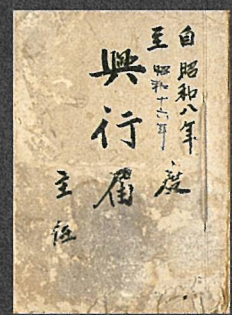 自昭和八年度
至昭和十六年
興行届
主任